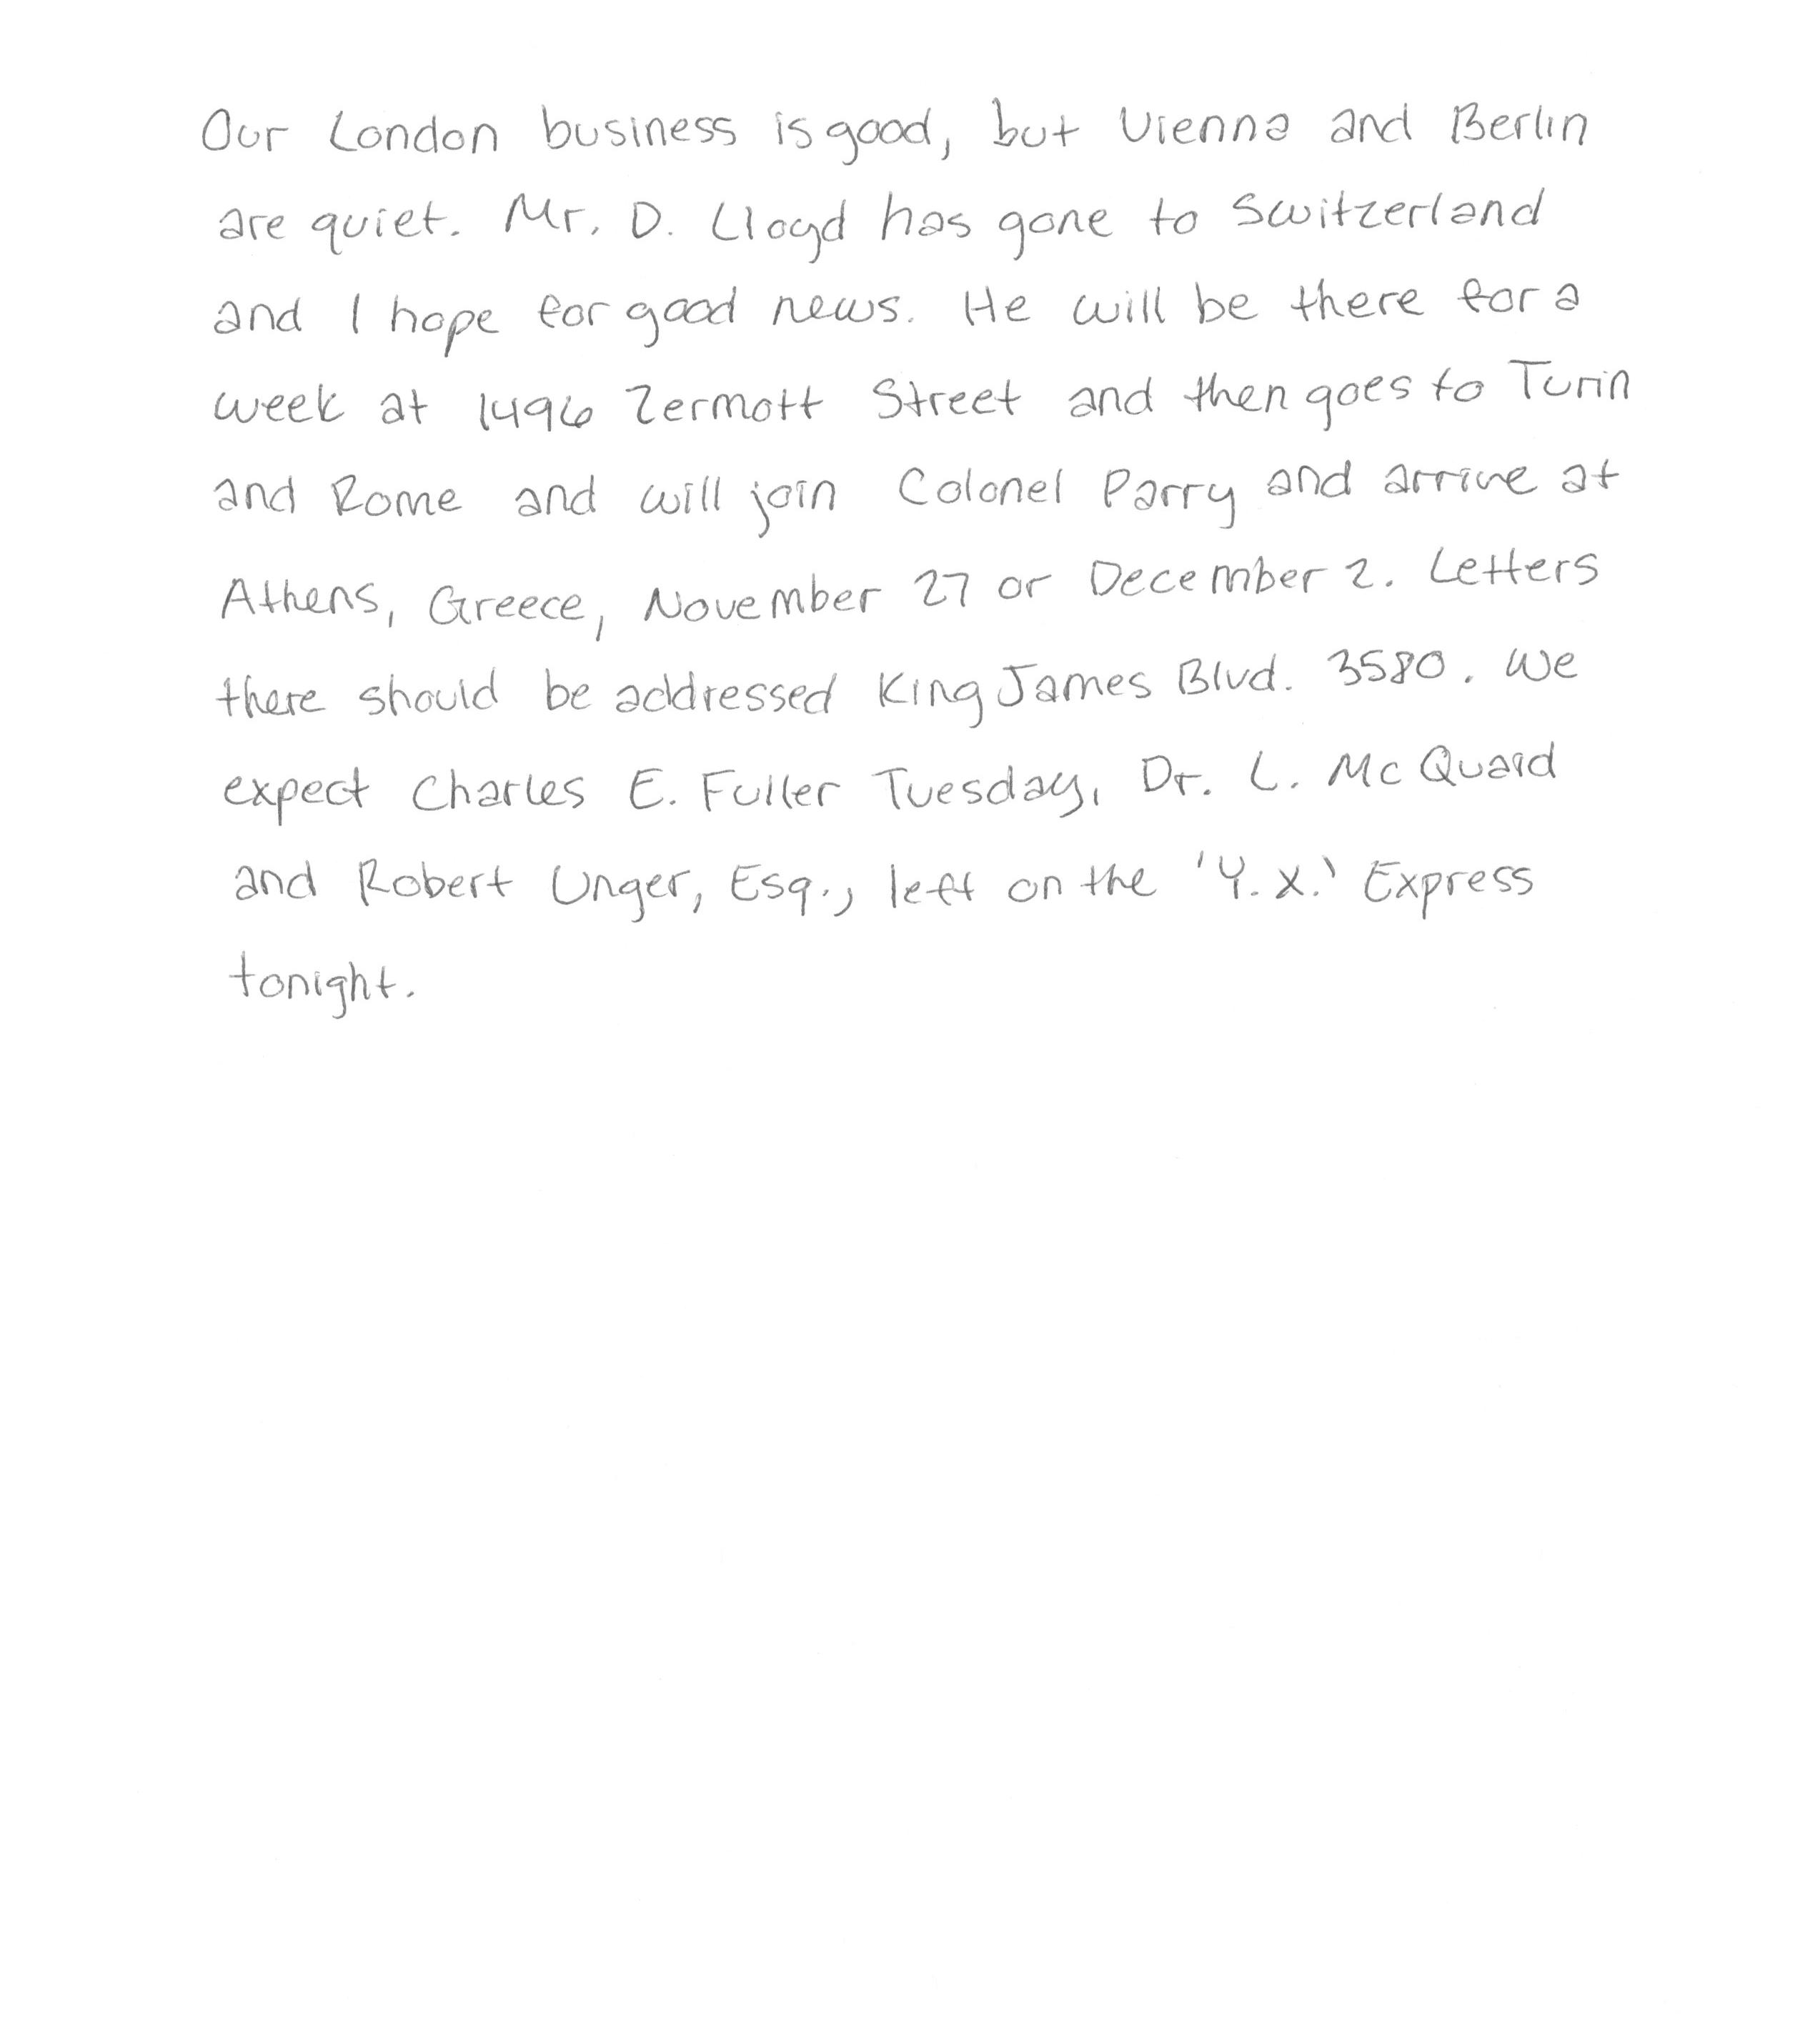 Our London business is good, but Vienna and Berlin
are quiet. Mr. D. Lloyd has gone to Switzerland
and I hope for good news. He will be there for a
week at 1496 Zermott Street and then goes to Turin
and Rome and will join Colonel Parry and arrive at
Athens, Greece, November 27 or December 2. Letters
there should be addressed King James Blvd. 3580. We
expect Charles E. Fuller Tuesday. Dr. L. McQuaid
and Robert Unger, Esq., left on the 'Y.X.' Express
tonight.